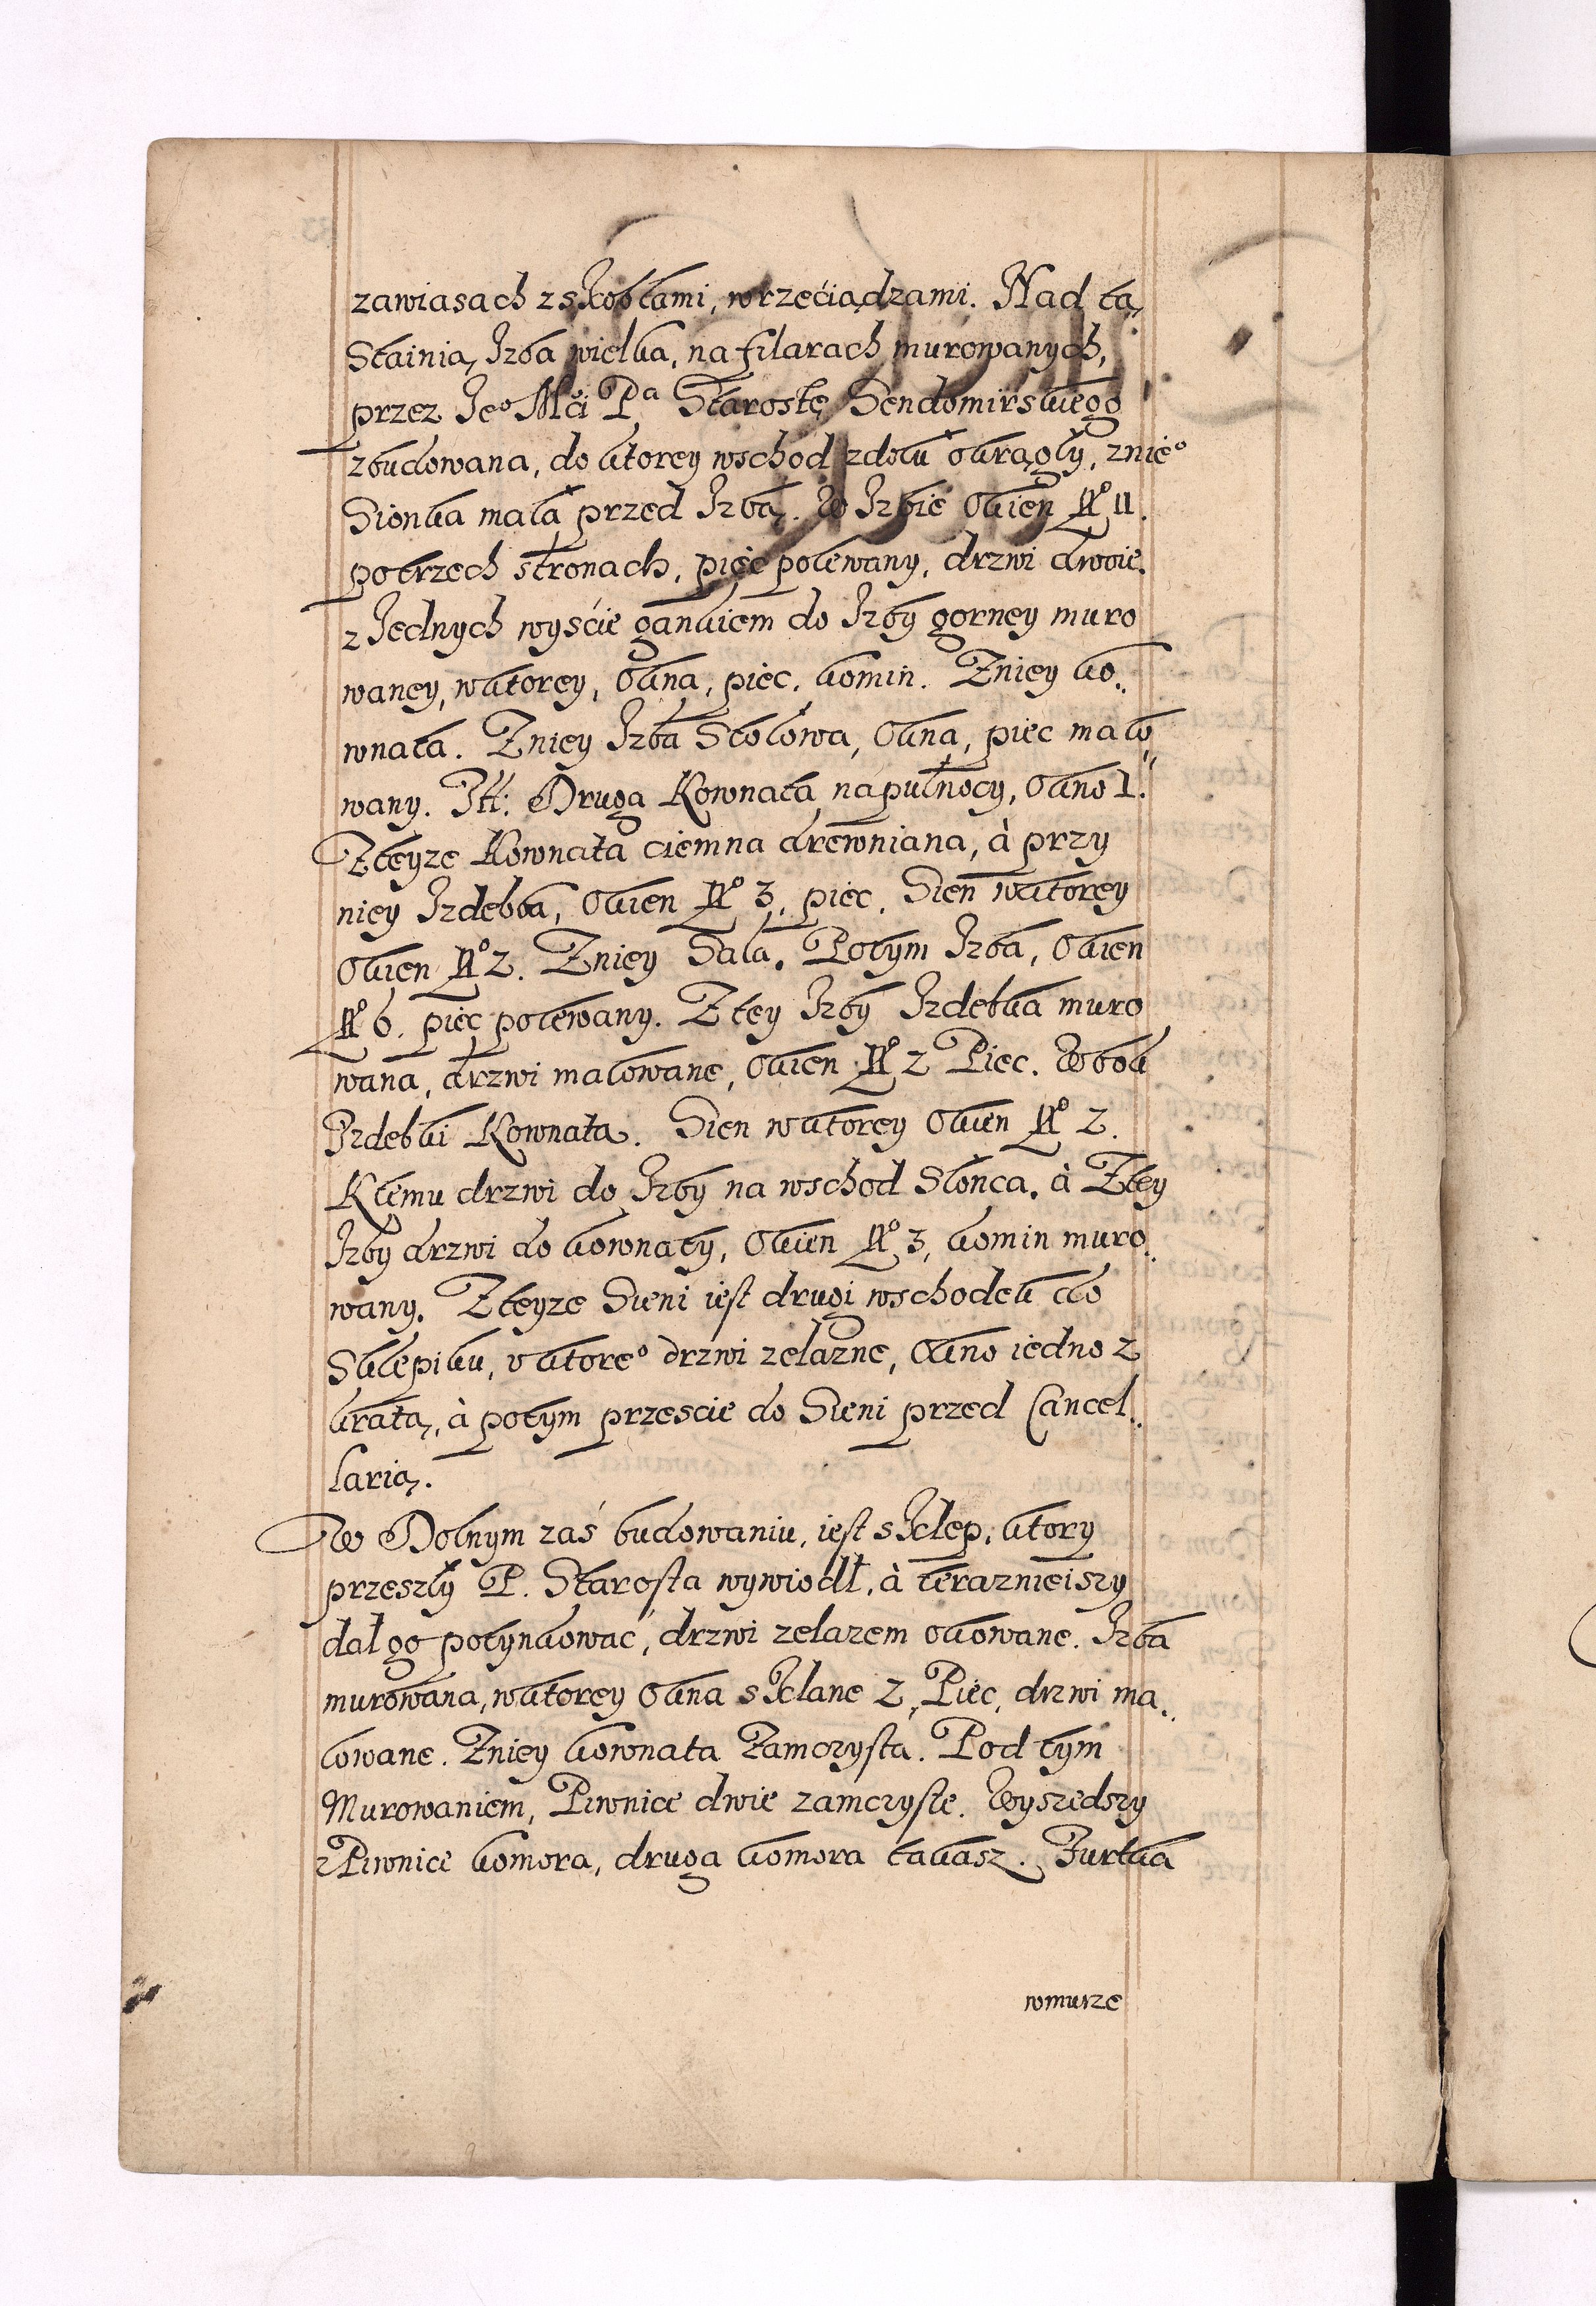 zawiasach z skoblami, wrzeciądzami. Nad tą
Stainią Izba wielka, na filarach murowanych,
przez Je° Mći Pa Starostę Sendomirskiego
zbudowana, do ktorey wschod zdołu okrągły, z nie°
Sionka mała przed Izbą. W Izbie Okien N° 11.
potrzech stronach, piec polewany, drzwi dwoie.
z Iednych wyście gankiem do Izby gorney muro
waney, wktorey, Okna, piec, komin. Zniey ko..
wnata. Zniey Izba Stołowa, Okna, piec malo„
wany. Itt: Druga Kownata na pułnocy, Okno 1.
Zteyze Kownata ciemna drewniana, à przy
niey Izdebka, Okien N° 3, piec. Sien wktorey
Okien N° 2. Zniey Sala. Potym Izba, Okien
N° 6. piec polewany. Ztey Izby Izdebka muro
wana, drzwi malowane, Okien N° 2 Piec. W bok
Izdebki Kownata. Sien wktorey Okien N° 2.
Ktemu drzwi do Izby na wschod Słonca. à Ztey
Izby drzwi do kownaty, Okien N° 3, komin muro..
wany. Zteyze Sieni iest drugi wschodek do
Sklepiku, v ktore° drzwi zelazne, Okno iedno z
kratą, à potym przescie do Sieni przed Cancel..
larią.
W Dolnym zaś budowaniu, iest sklep, ktory
przeszły P. Starosta wywiodł, à teraznieiszy
dał go potynkować, drzwi zelazem okowane. Izba
murowana, wktorey Okna sklane 2, Piec, drzwi ma..
lowane. Zniey kownata Zamczysta. Pod tym
Murowaniem, Piwnice dwie zamczyste. Wyszedszy
z Piwnice komora, druga komora takasz. Furtka
wmurze